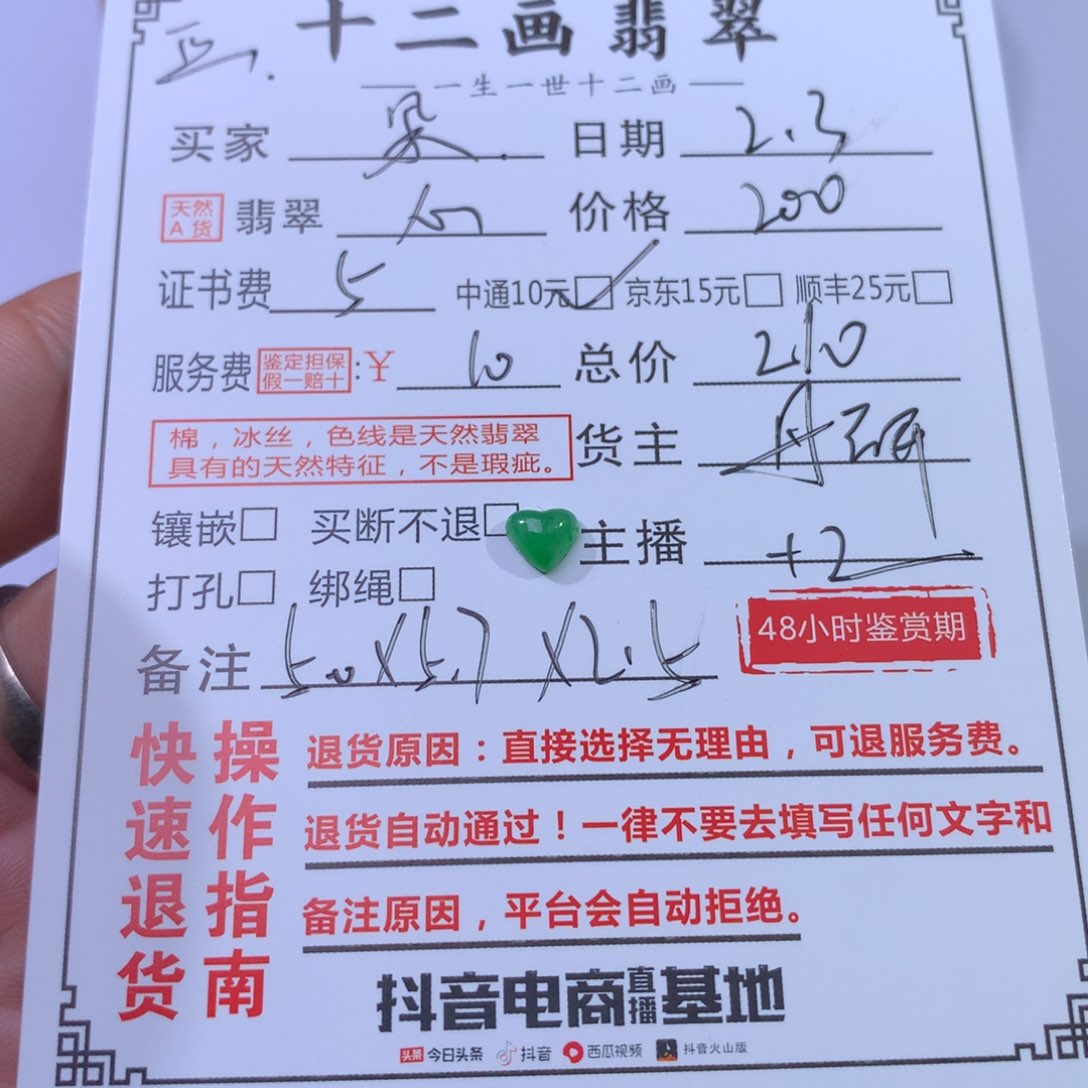 十二画翡翠
一生一世十二画
买家 日期 2.3
天然A货 翡翠 价格 200
证书费 5 中通10元 京东15元 顺丰25元
服务费 鉴定担保 假一赔十 :¥ 10 总价 210
棉，冰丝，色线是天然翡翠
具有的天然特征，不是瑕疵。
货主
镶嵌 买断不退 主播 +2
打孔 绑绳
48小时鉴赏期
备注 5.0X5.7X2.5
快速退货操作指南
退货原因：直接选择无理由，可退服务费。
退货自动通过！一律不要去填写任何文字和
备注原因，平台会自动拒绝。
抖音电商直播基地
头条 今日头条 抖音 西瓜视频 抖音火山版